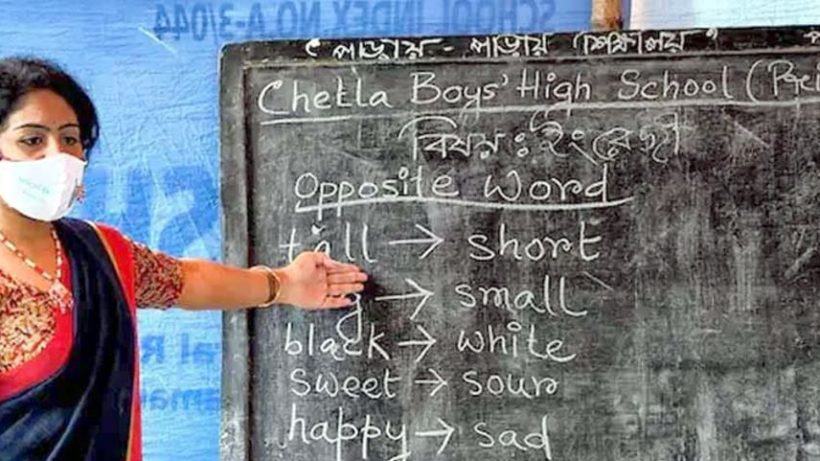 SCHOOL INDEX NO.A-3/044
“পাড়ায় - পাড়ায় শিক্ষালয়”
Chetla Boys' High School (Pri
বিষয় : ইংরেজী
Opposite Word
tall → short
g → small
black → white
sweet → sour
happy → sad